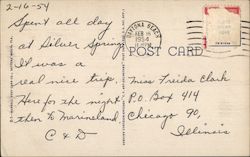 2-16-54
Spent all day
at Silver Spring
It was a
real nice trip.
Here for the night
then to Marineland
C & D
DAYTONA BEACH
FEB 16
1954
POST CARD
Miss Freida Clark
P.O. Box 414
Chicago 90,
Illinois